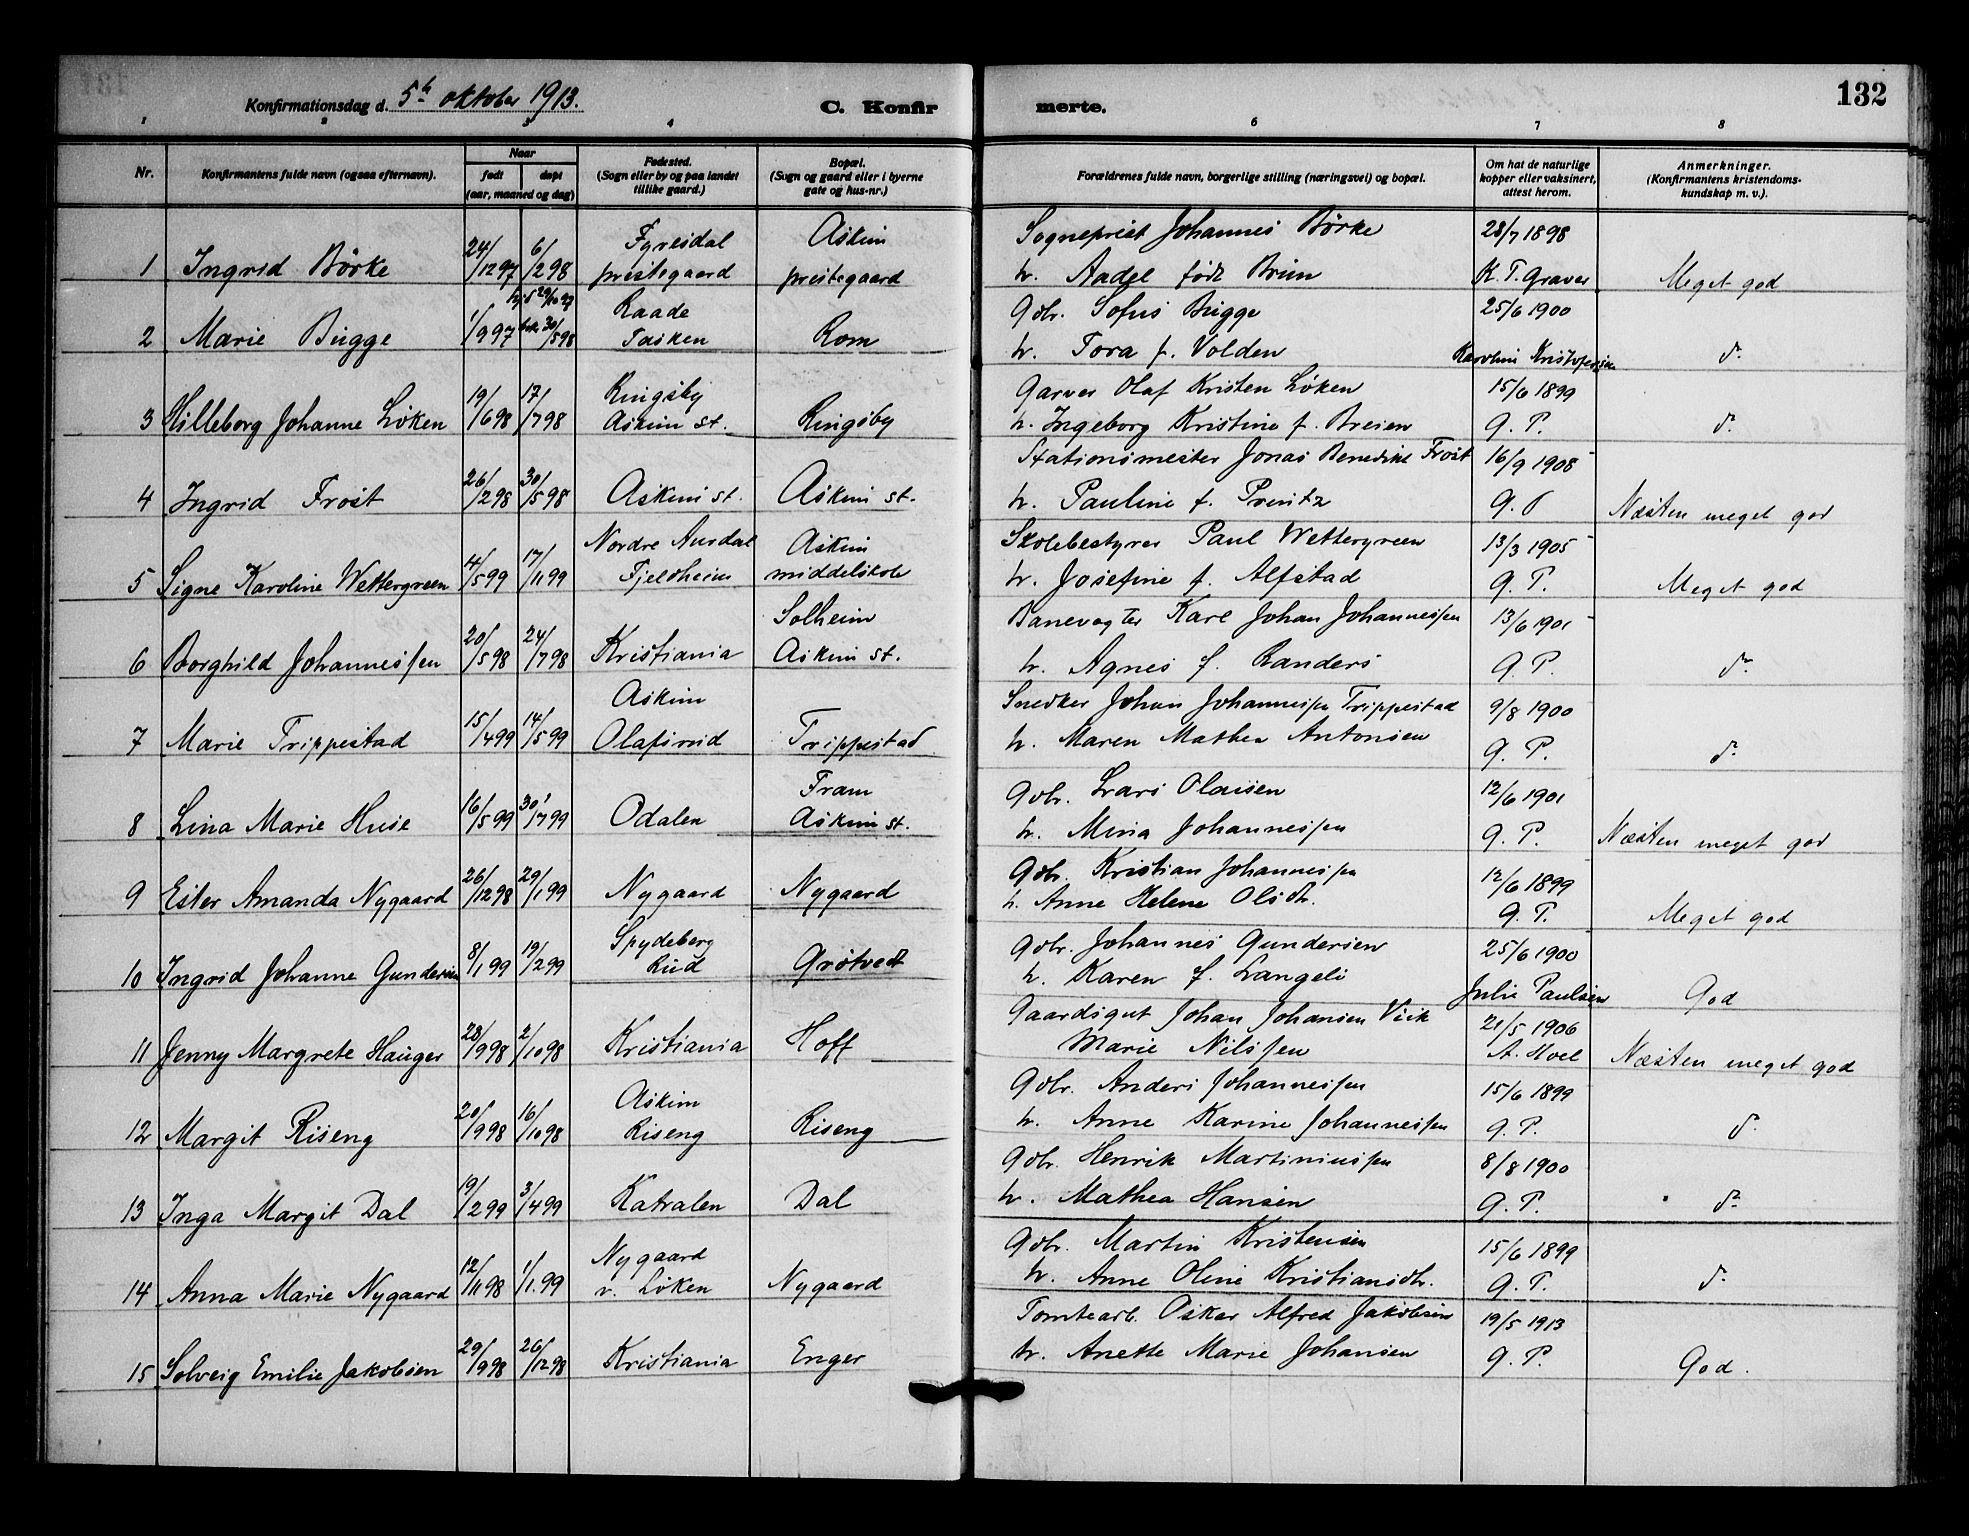 Konfirmationsdag d. 5te oktober 1913.
C. Konfirmerte.
132
1 2 3 4 5 6 7 8
Nr.
Konfirmantens fulde navn (ogsaa efternavn).
Naar
født døpt
(aar, maaned og dag)
Fødested.
(Sogn eller by og paa landet
tillike gaard.)
Bopæl.
(Sogn og gaard eller i byerne
gate og hus-nr.)
Forældrenes fulde navn, borgerlige stilling (næringsvei) og bopæl.
Om hat de naturlige
kopper eller vaksinert,
attest herom.
Anmerkninger.
(Konfirmantens kristendoms-
kundskap m. v.).
24/ 6/ Fyresdal Askim Sogneprest Johannes Börke 28/7 1898
1 Ingrid Börke /12 97 /2 98 prestegaard prestegaard h. Aadel född Brun K. T. Graver Meget god
hjd 29/10 97 Raade Gbr. Sofus Bugge 25/6 1900
2 Marie Bugge 1/9 97 bekr. 30/5 98 Tasken Rom h. Tora f. Volden Karoline Kristofersen do
19/ 17/ Ringsby Garver Olaf Kristen Löken 15/6 1899
3 Hilleborg Johanne Löken /6 98 /7 98 Askim st. Ringsby h. Ingeborg Kristine f. Breien G. P. do
26/ 30/ Stationsmester Jonas Benedikt Frost 16/9 1908
4 Ingrid Frost /2 98 /5 98 Askim st. Askim st. h. Pauline f. Preutz G. P Næsten meget god
Nordre Aurdal Askim Skolebestyrer Paul Wettergreen 13/3 1905
5 Signe Karoline Wettergreen 4/5 99 17/11 99 Fjeldheim middelskole h. Josefine f. Alfstad G. P. Meget god
Solheim Banevogter Karl Johan Johannessen 13/6 1901
6 Borghild Johannessen 20/5 98 24/7 98 Kristiania Askim st. h. Agnes f. Randers G. P. do
Askim Snedker Johan Johannessen Trippestad 9/8 1900
7 Marie Trippestad 15/4 99 14/5 99 Olafsrud Trippestad h. Maren Mathea Antonsen G. P. do
Fram Gbr. Lars Olaisen 12/6 1901
8 Lina Marie Huse 16/5 99 30/7 99 Odalen Askim st. h. Mina Johannessen G. P. Næsten meget god
Gbr. Kristian Johannessen 12/6 1899
9 Ester Amanda Nygaard 26/12 98 29/1 99 Nygaard Nygaard h. Anne Helene Olsdtr. G. P. Meget god
Spydeberg Gbr. Johannes Gundersen 25/6 1900
10 Ingrid Johanne Gundersen 8/1 99 19/2 99 Rud Grötvedt h. Karen f. Langeli Julie Paulsen God
Gaardsgut Johan Johansen Viik 21/5 1906
11 Jenny Margrete Hauger 28/9 98 2/10 98 Kristiania Hoff Marie Nilssen A. Hoel Næsten meget god
Askim Gbr. Anders Johannessen 15/6 1899
12 Margit Riseng 20/9 98 16/10 98 Riseng Riseng h. Anne Karine Johannessen G. P. do
Gbr. Henrik Martiniussen 8/8 1900
13 Inga Margit Dal 19/2 99 3/4 99 Katralen Dal h. Mathea Hansen G. P. do
Nygaard Gbr. Martin Kristensen 15/6 1899
14 Anna Marie Nygaard 12/11 98 1/1. 99 v. Löken Nygaard h. Anne Oline Kristiansdtr. G. P. do
Tomtearb. Oskar Alfred Jakobsen 19/5 1913
15 Solveig Emilie Jakobsen 29/9 98 26/12 98 Kristiania Enger h. Anette Marie Johansen G. P. God.